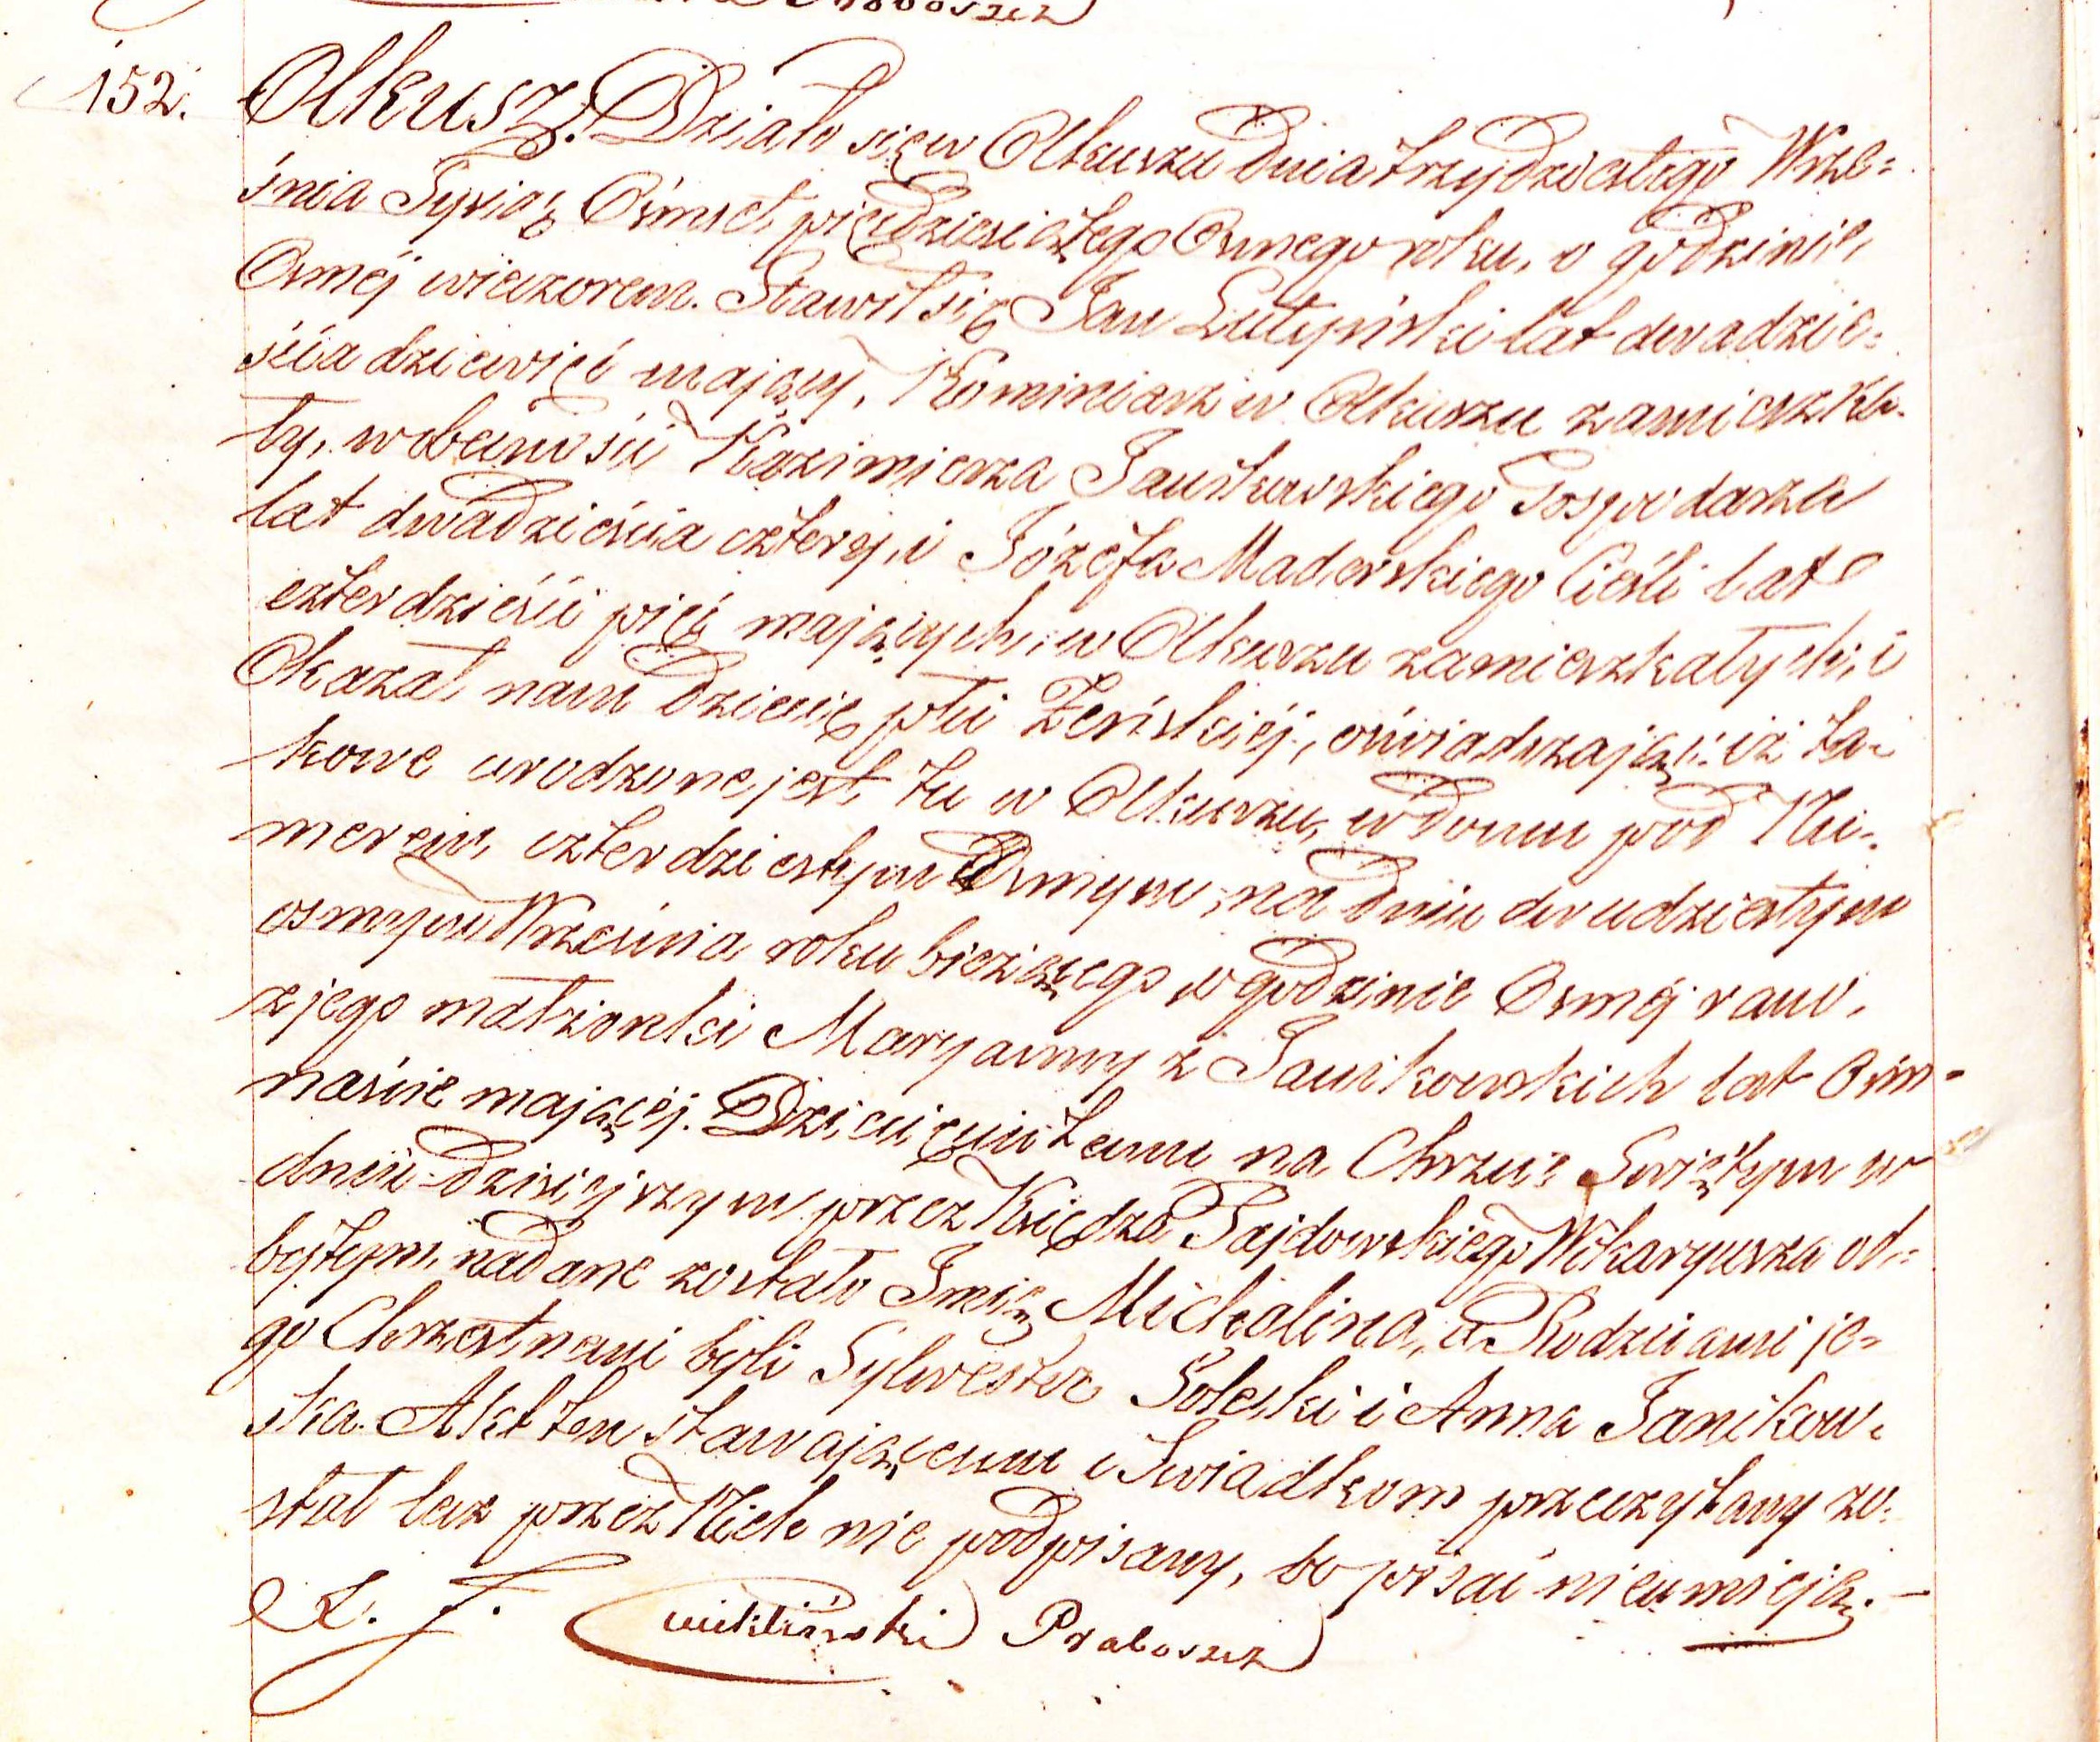 Proboszcz
152. Olkusz. Działo się w Olkuszu dnia trzydziestego Wrze=
śnia Tysiąc Ośmset pięćdziesiątego Osmego roku, o godzinie,
Osmej wieczorem. Stawił się Jan Lutyński lat dwadzie=
ścia dziewięć mający, Kominiarz w Olkuszu zamieszka=
ły, w obecności Kazimierza Janikowskiego Gospodarza
lat dwadzieścia cztery, i Józefa Maderskiego Cieśli lat
czterdzieści pięć mających, w Olkuszu zamieszkałych, i
Okazał nam dziecię płci Żeńskiéj, oświadczając iż ta=
kowe urodzone jest, tu w Olkuszu, w domu pod Nu=
merem, czterdziestym Osmym, na dniu dwudziestym
osmym Września roku bieżącego o godzinie Osméj rano,
z jego małżonki Maryanny z Janikowskich lat Ośm=
naście mającéj. Dziecięciu temu na Chrzcie Świętym w
dniu dzisiejszym przez Księdza Pajdowskiego Wikaryusza od=
bytym, nadane zostało Imię Michalina, a Rodzicami je=
go Chrzestnemi byli Sylwester Soleski i Anna Janikow=
ska. Akt ten stawającemu i Świadkom przeczytany zo=
stał lecz przez Nich nie podpisany, bo pisać nieumieją. —
X. J. Cwikliński Proboszcz